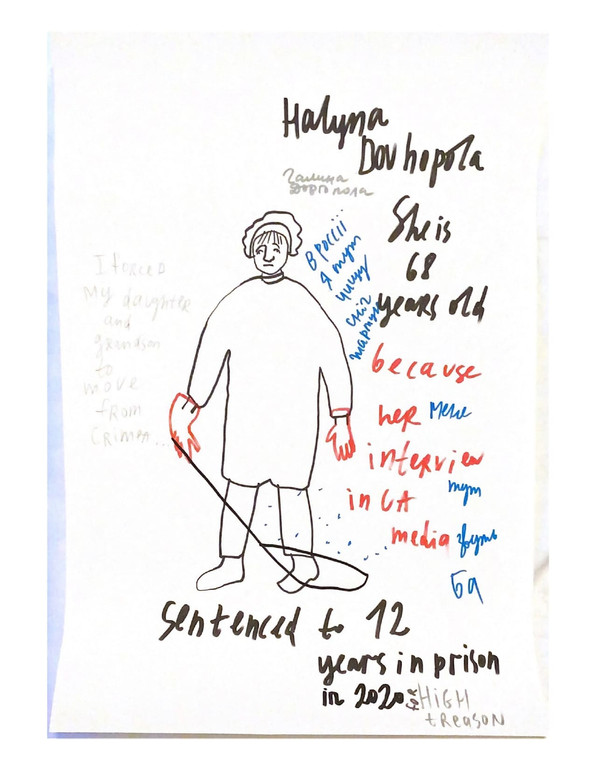 Halyna
Dovhopola
Галина
Довгопола
She is
68
years old
because
her
interview
in UA
media
I forced
My daughter
and
grandson
to
move
from
CRIMEA...
В россії...
я тут
чищу
сніг
мене
тут
звуть
ба
sentenced to 12
years in prison
in 2020 for HiGH
treason